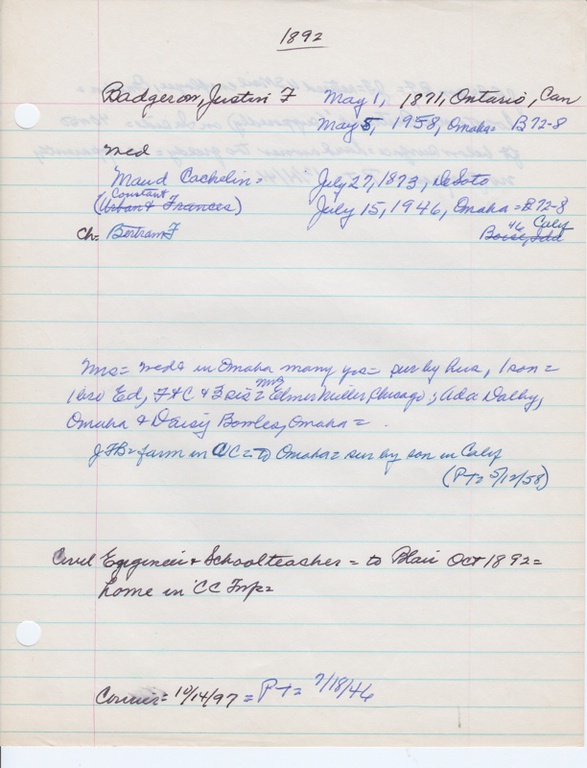 1892
Badgerow, Justin F May 1, 1871, Ontario, Can
May 5, 1958, Omaha= B72-8
Med
Maud Cachelin= July 27, 1873, DeSoto
Constant
(Urban & Frances) July 15, 1946, Omaha = B72-8
46 Calif
Ch= Bertram F Boise, Ida
Mrs= in Omaha many yrs= sur by hus, 1 son=
1 bro Ed, F&C & 3 sis= Mrs Elmer Miller Chicago; Ada Dalby,
Omaha & Daisy Bowles, Omaha=.
JFB= farm in CC= to Omaha= sur by son in Calif
(PT= 5/12/58)
Civil Egegineir & Schoolteacher = to Blair Oct 1892=
home in CC Twp=
Courier= 10/14/97 = PT= 7/18/46